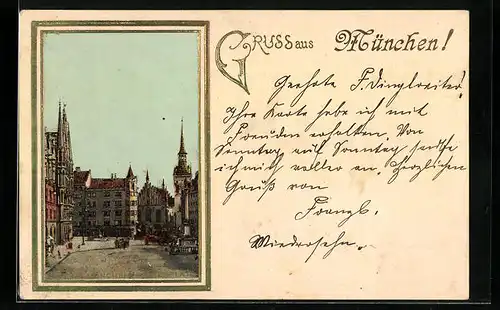 GRUSS aus München!
Geehrte F. Dinglreiter,
Ihre Karte habe ich mit
Freuden erhalten. Von
Sonntag auf Sonntag
ich mich an. Herzlichen
Gruß von
Franzl.
Wiedersehn.